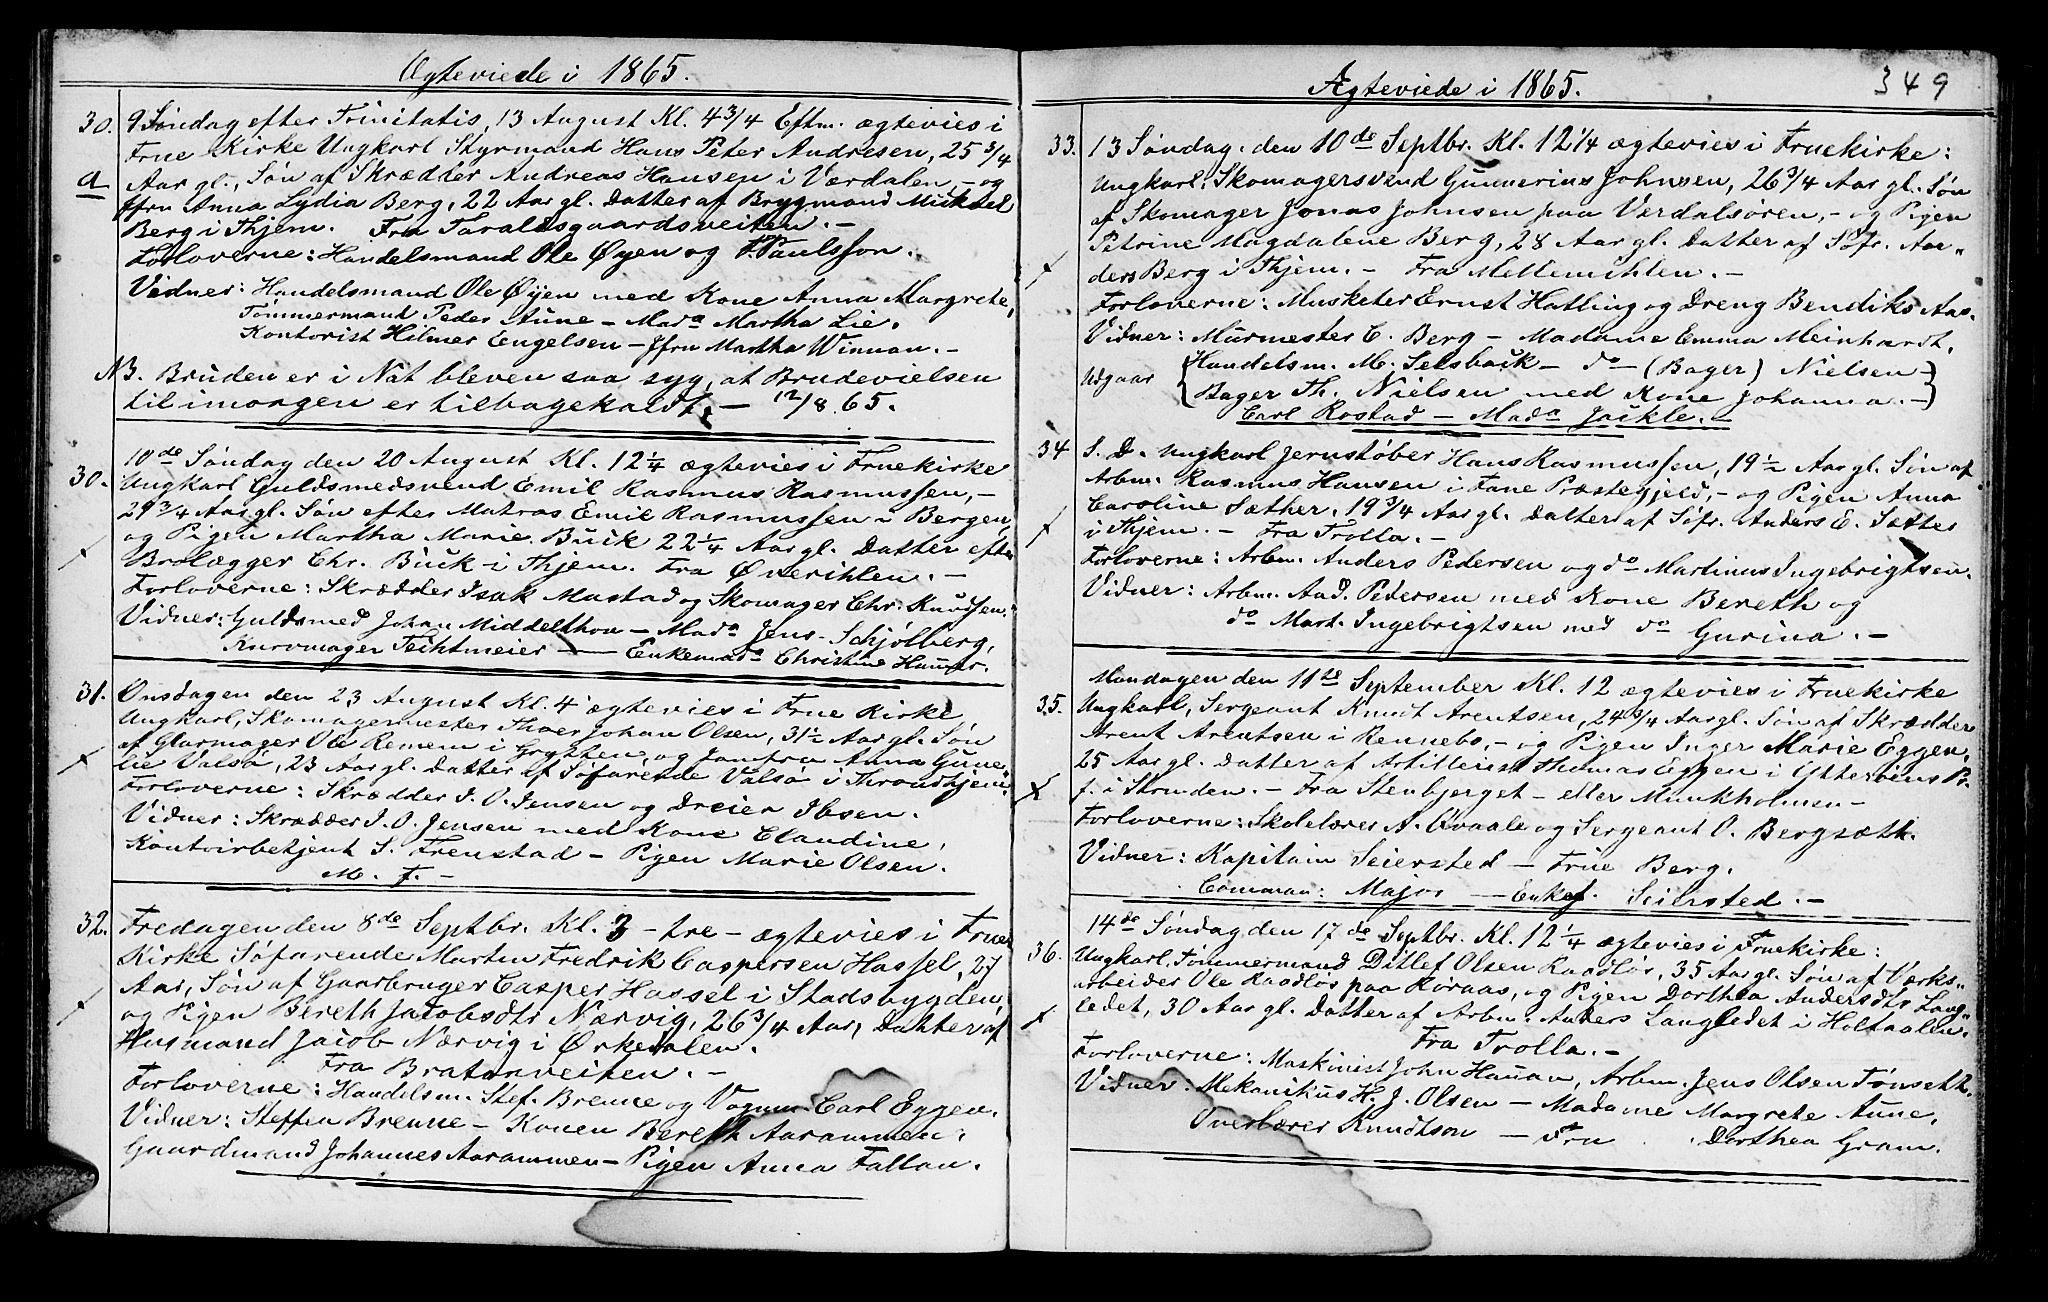 Ægteviede i 1865.
30. 9 Søndag efter Trinitatis, 13 August Kl. 4 3/4 Eftm. ægtevies i
Frue Kirke Ungkarl Styrmand Hans Peter Andresen, 25 3/4
a Aar gl., Søn af Skrædder Andreas Hansen i Værdalen, - og
Jfru Anna Lydia Berg, 22 Aar gl. Datter af Brygmand Mickael
Berg i Thjem. Fra Taraldsgaardsveiten. -
Forloverne: Handelsmand Ole Øyen og F. Paulsson.
Vidner: Handelsmand Ole Øyen med Kone Anna Margrete,
Tømmermand Peder Aune - Mada Martha Lie.
Kontorist Hilmer Engelsen - Jfru Martha Winnan. -
NB. Bruden er i Nat bleven saa syg, at Brudevielsen
til imorgen er tilbagekaldt. - 12/8 65.
10de Søndag den 20 August Kl. 12 1/4 ægtevies i Fruekirke
30. Ungkarl Guldsmedsvend Emil Rasmus Rasmussen, -
29 3/4 Aar gl. Søn efter Matros Emil Rasmussen i Bergen
og Pigen Martha Marie Buck 22 1/4 Aar gl. Datter efter
Brolægger Chr. Buck i Thjem. Fra Øverihlen. -
Forloverne: Skrædder Isak Mastad og Skomager Chr. Knudsen.
Vidner: Guldsmed Johan Middelthon - Mada Jens Schjølberg,
Kurvmager Teihtmeier - Enkemada Christine
31. Onsdagen den 23 August Kl. 4 ægtevies i Frue Kirke
Ungkarl, Skomagermester Thoer Johan Olsen, 31 1/2 Aar gl. Søn
af Glarmager Ole Remem i Grytten, og Jomfru Anna Gune-
lie Valsø, 23 Aar gl. Datter af Søfarende Valsø i Throndhjem.
Forloverne: Skrædder J. O. Jensen og Dreier Ibsen.
Vidner: Skrædder J. O. Jensen med Kone Claudine,
Kontoirbetjent S. Frenstad - Pigen Marie Olsen.
M. F. -
32. Fredagen den 8de Septbr. Kl. 3 - tre - ægtevies i Frue
Kirke Søfarende Morten Fredrik Caspersen Hassel, 27
Aar, Søn af Gaardbruger Casper Hassel i Stadsbygden
og Pigen Bereth Jacobsdtr Nærvig, 26 3/4 Aar, Datter af
Husmand Jacob Nærvig i Ørkedalen.
Fra Bratørveiten. -
Forloverne: Handelsm. Stef. Brenne og Vognm. Carl Eggen.
Vidner: Steffen Brenne - Konen Bereth Aarammen.
Gaardmand Johannes Aarammen - Pigen Anna Fallan.
Ægteviede i 1865. 349
33. 13 Søndag. den 10de Septbr. Kl. 12 1/4 ægtevies i Fruekirke:
Ungkarl. Skomagersvend Gunnerius Johnsen, 26 3/4 Aar gl. Søn
af Skomager Jonas Johnsen paa Verdalsøren, - og Pigen
Petrine Magdalene Berg, 28 Aar gl. Datter af Søfr. An-
ders Berg i Thjem. - Fra Mellemihlen. -
Forloverne: Musketer Ernst Hatling og Dreng Bendiks Aas.
Vidner: Murmester C. Berg - Madame Emma Meinhardt,
Udgaar (Handelsm. M. Selsback - do - (Bager) Nielsen -)
(Bager Th. Nielsen med Kone Johanna. -)
Carl Rostad - Mada Jackle. -
34 S. D. Ungkarl Jernstøber Hans Rasmussen, 19 1/2 Aar gl. Søn af
Arbm. Rasmus Hansen i Fane Præstegjeld, - og Pigen Anna
Caroline Sæther, 19 3/4 Aar gl. Datter af Søfr. Anders E. Sæther
i Thjem. - Fra Trolla. -
Forloverne: Arbm. Anders Pedersen og do Martinus Ingebrigtsen.
Vidner: Arbm. And. Pedersen med Kone Bereth og
do Mart. Ingebrigtsen med do Gurina. -
Mandagen den 11te September Kl. 12 ægtevies i Fruekirke
35. Ungkarl, Sergeant Knudt Arentsen, 24 3/4 Aar gl. Søn af Skrædder
Arent Arentsen i Rennebo, - og Pigen Inger Marie Eggen,
25 Aar gl. Datter af Artillerist Thomas Eggen i Ytterøens Pr.
f. i Stranden. - Fra Stenbjerget - eller Munkholmen -
Forloverne: Skolelærer A. Qvaale og Sergeant O. Bergsæth.
Vidner: Kapitain Seiersted - Frue Berg.
Comman: Major - Enkef. Seiersted. -
14de Søndag den 17de Septbr. Kl. 12 1/4 ægtevies i Fruekirke:
36. Ungkarl, Tømmermand Ditlef Olsen Raadløs, 35 Aar gl. Søn af Værks-
arbeider Ole Raadløs paa Røraas, og Pigen Dorthea Andersdtr Lang-
ledet, 30 Aar gl. Datter af Arbm. Anders Langledet i Holtaalen.
Fra Trolla. -
Forloverne: Maskinist John Hauan, Arbm. Jens Olsen Tønseth.
Vidner: Mekanikus H. J. Olsen - Madame Margrete Aune,
Overlærer Knudtson - Fru Dorthea Gram.